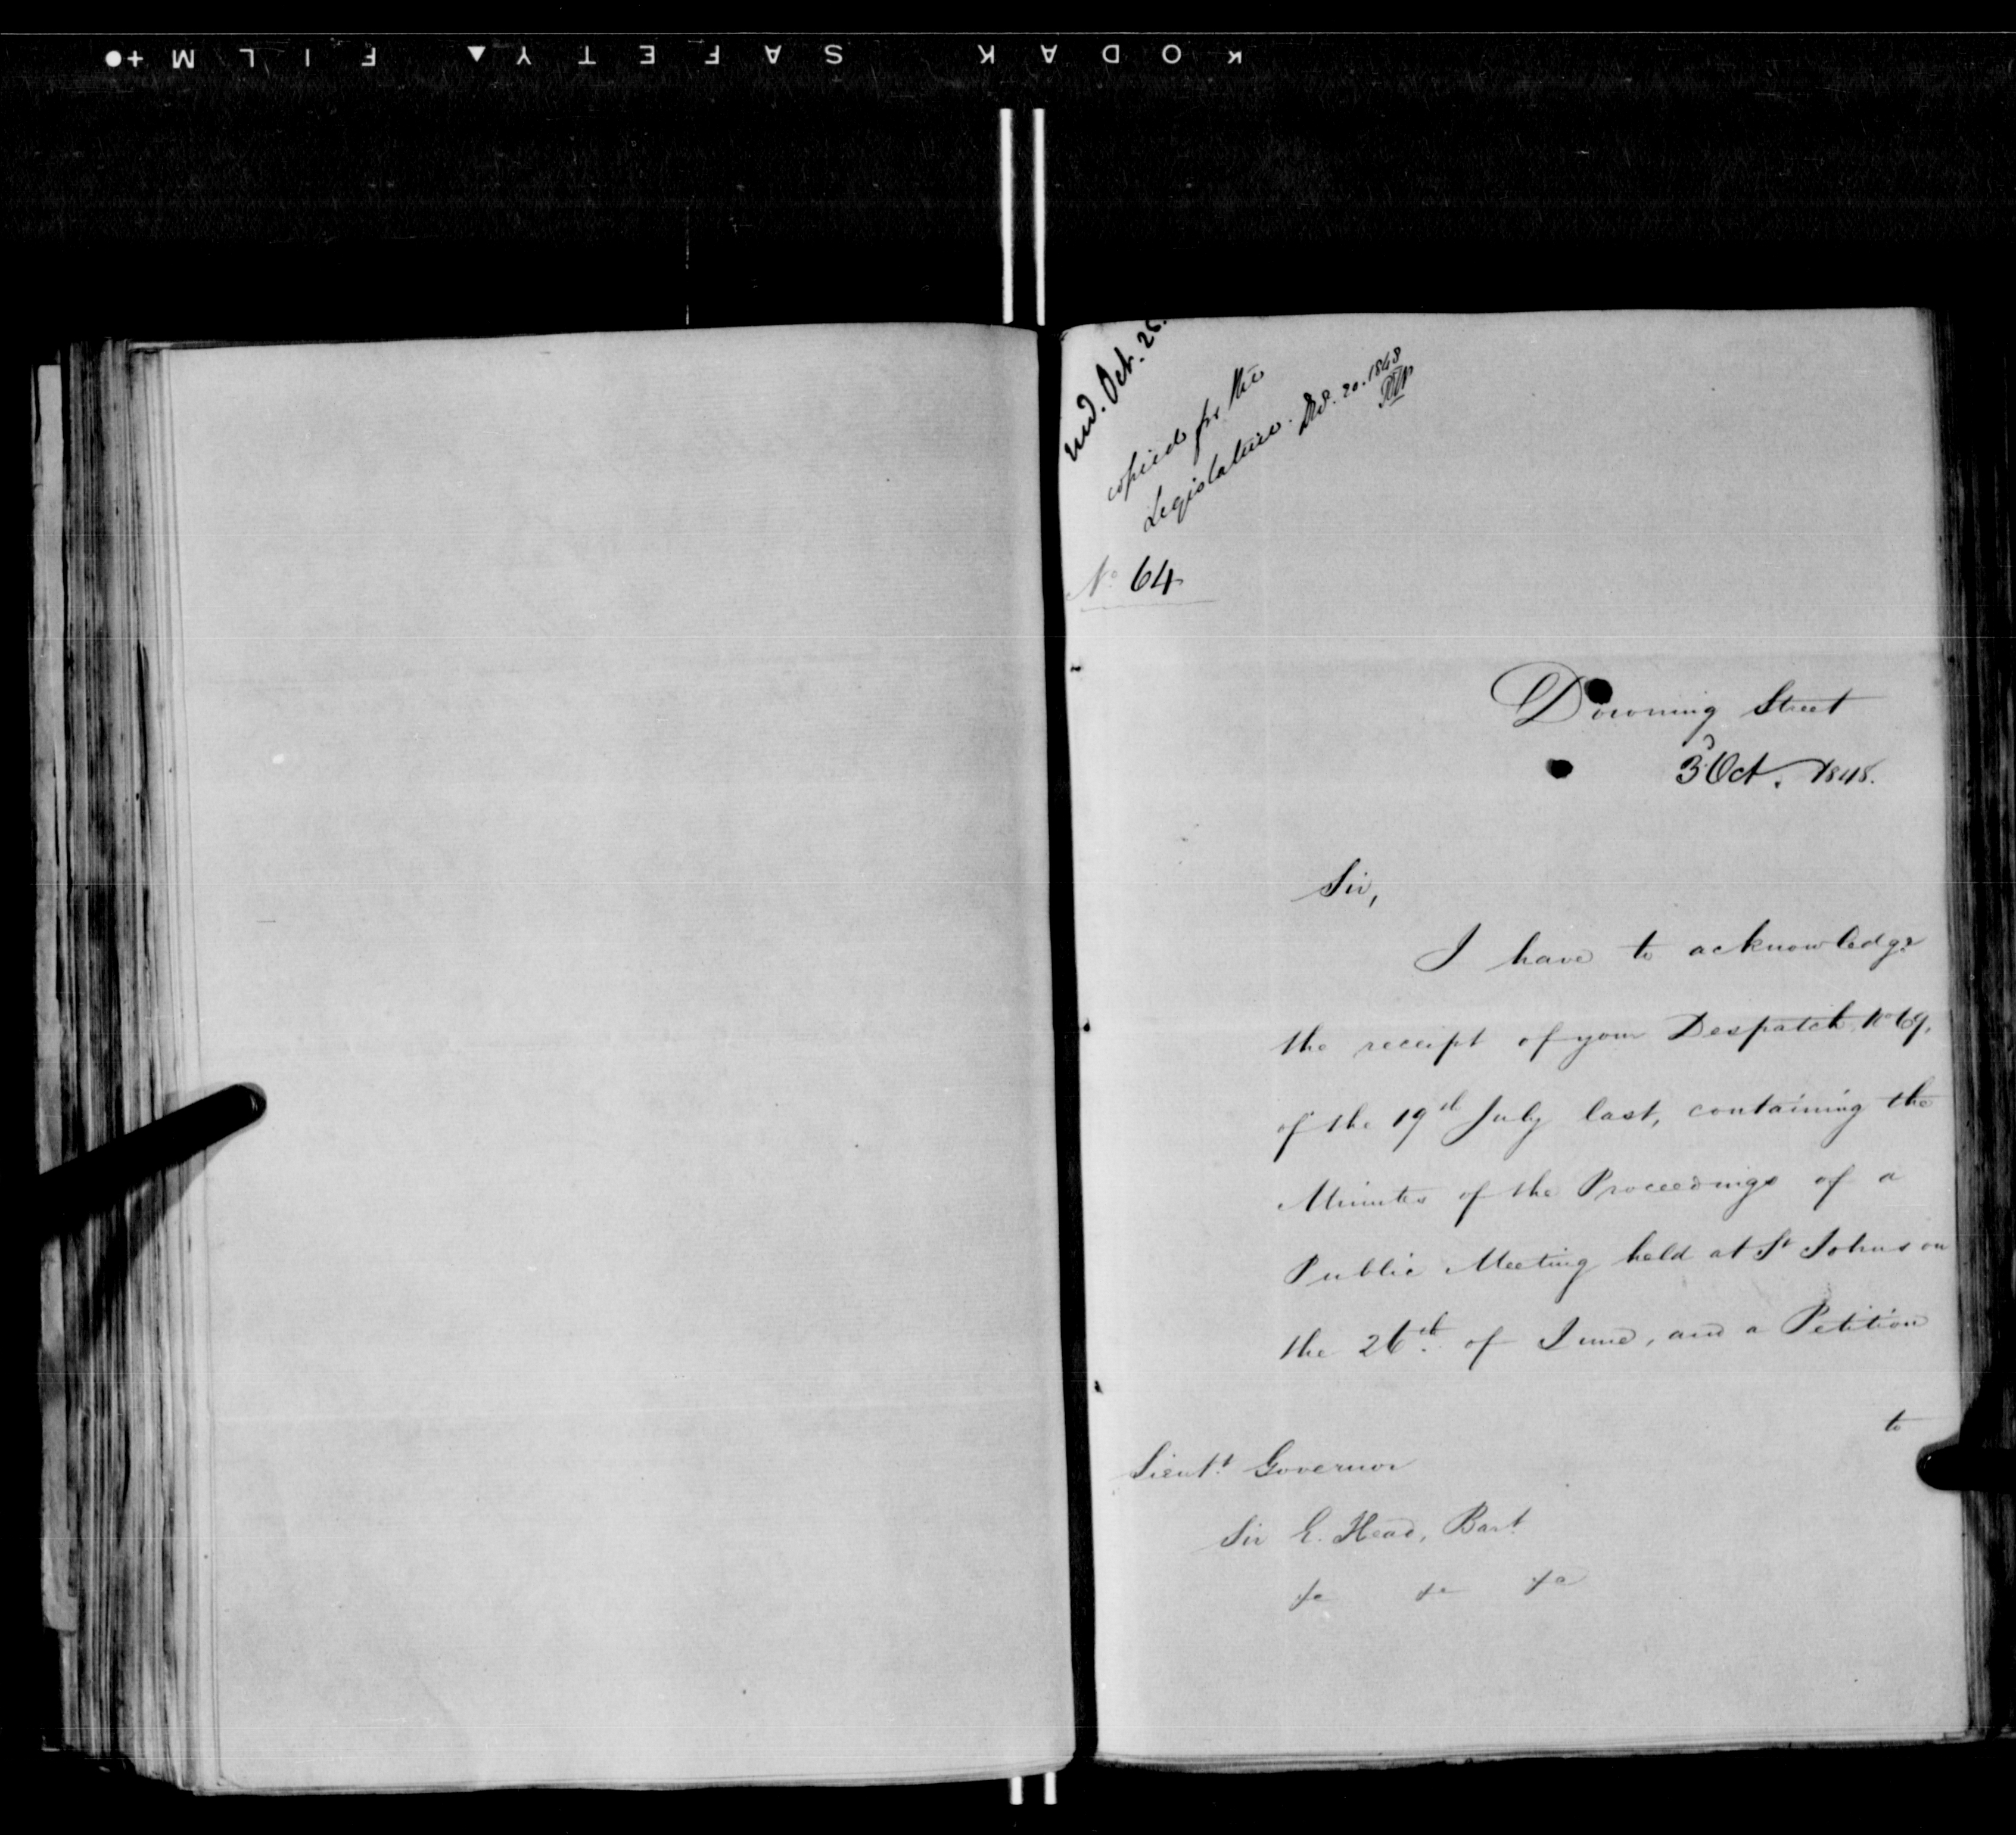 KODAK SAFETY FILM
Oct. 26.
copied for the
Legislature. 20. 1848
No 64
Downing Street
3d Oct. 1848.
Sir,
I have to acknowledge
the receipt of your Despatch No 69,
of the 19th July last, containing the
Minutes of the Proceedings of a
Public Meeting held at St Johns on
the 26th of June, and a Petition
to
Lieutt Governor
Sir E. Head, Bart
&c &c &c